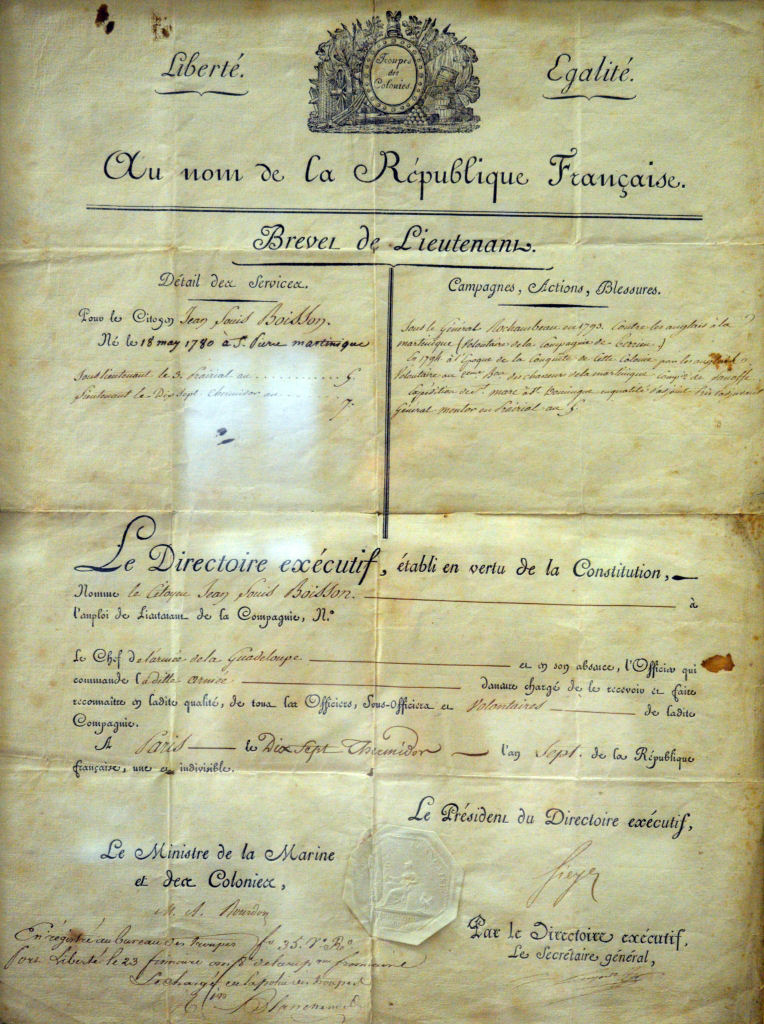 Liberté.
Troupes
des
Colonies.
Egalité.
Au nom de la République Française.
Brevet de Lieutenant.
Détail des Services.
Pour le Citoyen Jean Louis Boisson.
Né le 18 may 1780 à St. Pierre martinique
Souslieutenant le 3. Prairial an . . . . . . . . . . 5.
Lieutenant le Dix Sept Thermidor an . . . . . 7.
Campagnes, Actions, Blessures.
Sous le Général Rochambeau en 1793. Contre les anglais à la
martinique (Volontaire de la Compagnie de
En 1794 à l'époque de la Conquête de Cette Colonie par les anglais
Volontaire au Bon. des chasseurs de la martinique Compie. de
Expédition de St. marc à St. Domingue en qualité
Général en Prairial an 5.
Le Directoire exécutif, établi en vertu de la Constitution,
Nomme le Citoyen Jean Louis Boisson. à
l'emploi de Lieutenant de la Compagnie, N.º
Le Chef de l'armée de la Guadeloupe et en son absence, l'Officier qui
commande ladite armée demeure chargé de le recevoir et faire
reconnaître en ladite qualité, de tous les Officiers, Sous-Officiers et Volontaires de ladite
Compagnie.
A Paris le Dix Sept Thermidor l'an Sept. de la République
française, une et indivisible.
Le Président du Directoire exécutif,
Sieyes
Le Ministre de la Marine
et des Colonies,
M. A. Bourdon
Par le Directoire exécutif,
Le Secrétaire général,
Enrégistré au bureau des troupes fo. 35. Vo. Ro.
Port Liberté le 23 frimaire an 8e de la rep. française
Le chargé de la police des troupes